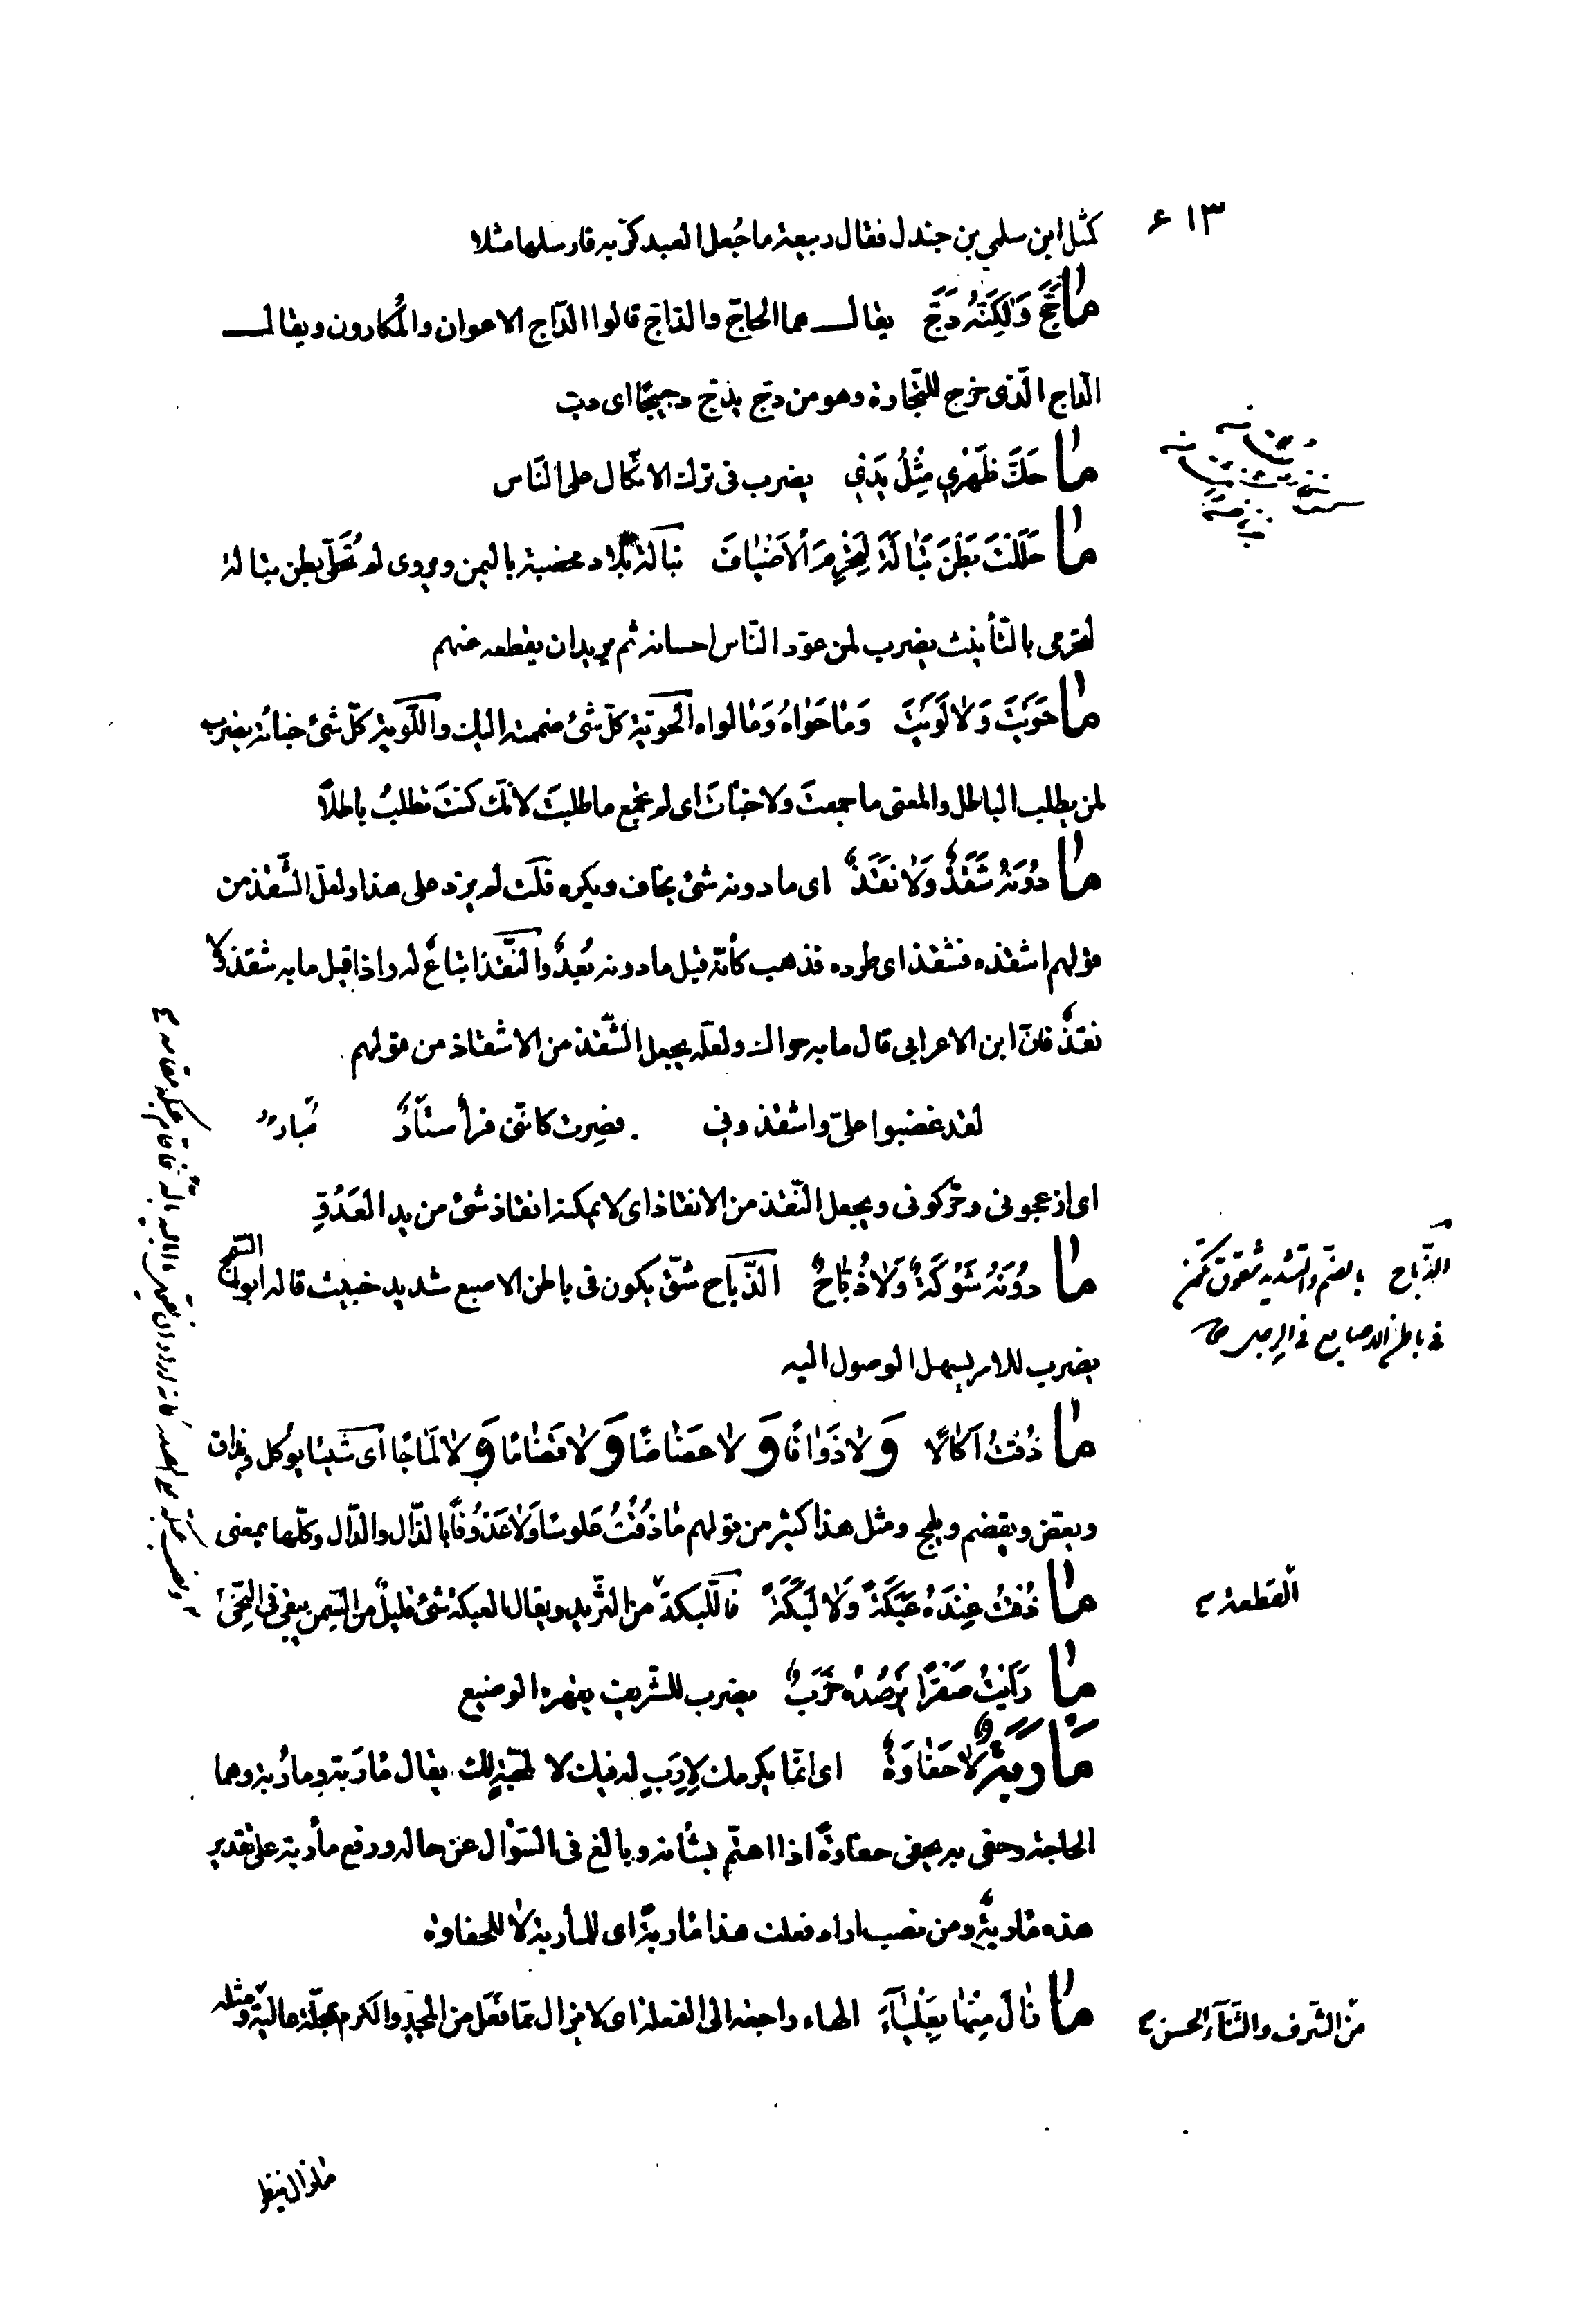 ٦١٣
كمثل ابن سلمي بن جندل فقال ربيعة ما جُعل العبد كربّه فارسلها مثلا
ما حَجَّ وَلٰكِنَّهُ دَجَّ يقال هما الحاجّ والداجّ قالوا الدّاج الاعوان والمُكارون ويقال
الداج الّذى خرج للتّجارة وهو من دجّ يدجّ دجيجًا اى دبّ
ما حَكَّ ظَهْرِي مِثْلُ يَدَيِ يضرب فى ترك الاتّكال على النّاس
ما حَلَلْتَ بَطْنَ تَبٰالَةَ لِتَحْرِمَ الْاَضْيٰافَ تبالة بلاد مخضبة باليمن ويروى لم تَحُلّى بطن تبالة
لتحرمى بالتّأنيث يضرب لمن عوّد النّاس احسانه ثم يريد ان يقطعه عنهم
ما حَوَيْتَ وَلٰا لَوَيْتَ وَمٰا حَوٰاهُ وَمٰا لواه الحويّة كلّ شئ ضممته اليك واللّويّة كلّ شئ خبأته يضرب
لمن يطلب الباطل والمعنى ما جمعتَ ولا خبأتَ اى لم تجمع ما طلبتَ لانّك كنتَ تطلبُ باطلاً
ما دُونَهُ شَقَذٌ وَلٰا نَقَذٌ اى ما دونه شئ يخاف ويكره قلت لم يزد على هذا ولعلّ الشّقذ من
قولهم اشقذه فشقذ اى طرده فذهب كأنّه قيل ما دونه بُعدٌ والنَّقذ اتباعٌ له واذا قيل ما به شقذ ولا
نقذٌ فانّ ابن الاعرابى قال ما به حراك ولعلّه يجعل الشّقذ من الاشقاذ من قولهم
لقد غضبوا علىّ واشقذونى فصِرت كانّنى فرأ متارٌ
اى ازعجونى وحرّكونى ويجعل النّقذ من الانقاذ اى لا يمكنه انقاذ شئ من يد العَدُوّ
ما دُونَهُ شَوْكَةٌ وَلٰا ذُبّاحٌ الذّبّاح شقّ يكون فى باطن الاصبع شديد خبيث قاله ابو السّمح
الذّباح بالضّم والتّشديد شقوق تكون
فى باطن الاصابع فى الرجل
يضرب للامر يسهل الوصول اليه
ما ذُقْتُ اَكٰالًا وَلٰا ذَوٰاقًا وَلٰا عَضٰاضًا وَلٰا قَضٰامًا وَلٰا لَمٰاجًا اى شيئا يؤكل ويذاق
ويعضّ ويقضم ويلمج ومثل هذا كثير من قولهم مٰا ذُقْتُ عَلوسًا وَلٰا عَذُوفًا بالذّال والدّال وكلّها بمعنى
ما ذُقْتُ عِنْدَهُ عَبَكَةً وَلٰا لَبَكَةً فاللّبكة من الثّريد ويقال العبكة شئ قليل من السّمن يبقى فى النّحى
القطعة
ما رَاَيْتُ صَقْرًا يَرْصُدُهُ خَرَبٌ يضرب للشّريف يقهره الوضيع
مَاْرَبَةٌ لٰا حَفٰاوَةٌ اى انّما يكرمك لِاَرَبٍ له فيك لا لمحبّةٍ لك يقال مَارَبَة ومارُبة وهما
الحاجة وحفى به يحفى حفاوةً اذا اهتمّ بشأنه وبالغ فى السّؤال عن حاله ورفع مأربة على تقدير
هذه ماربةٌ ومن نصب اراد فعلت هذا ماربةً اى للمأربة لا للحفاوة
ما زٰالَ مِنْهٰا بِعَلْيٰاءَ الهاء راجعة الى الفعلة اى لا يزال ممّا فَعَل من المجد والكرم بمحلّة عالية ومثله
من الشّرف والثّنآء الحسن
ما زال ينظر